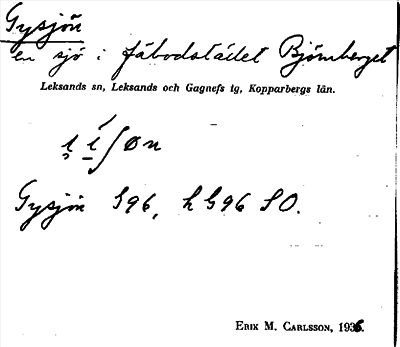 Gysjön
en sjö i fäbodstället Björnberget
Leksands sn, Leksands och Gagnefs tg, Kopparbergs län.
Gysjön S96, L G96 SO.
ERIK M. CARLSSON, 1936.